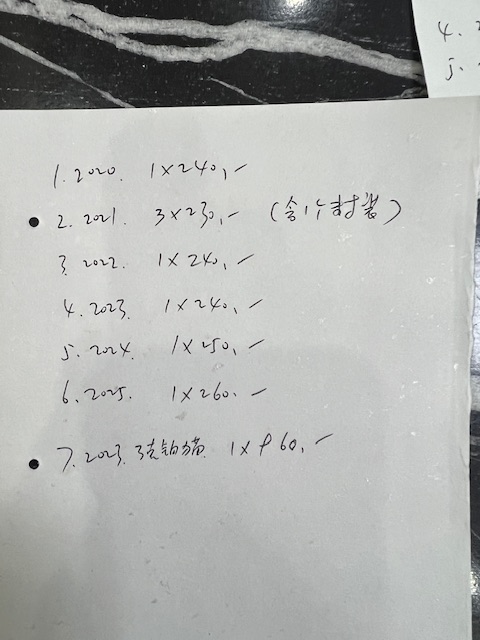 1. 2020. 1×240,-
2. 2021. 3×230,- (含1个封装)
3. 2022. 1×240,-
4. 2023. 1×240,-
5. 2024. 1×250,-
6. 2025. 1×260,-
7. 2023. 3克铂猫 1×860,-
4. 2
5.